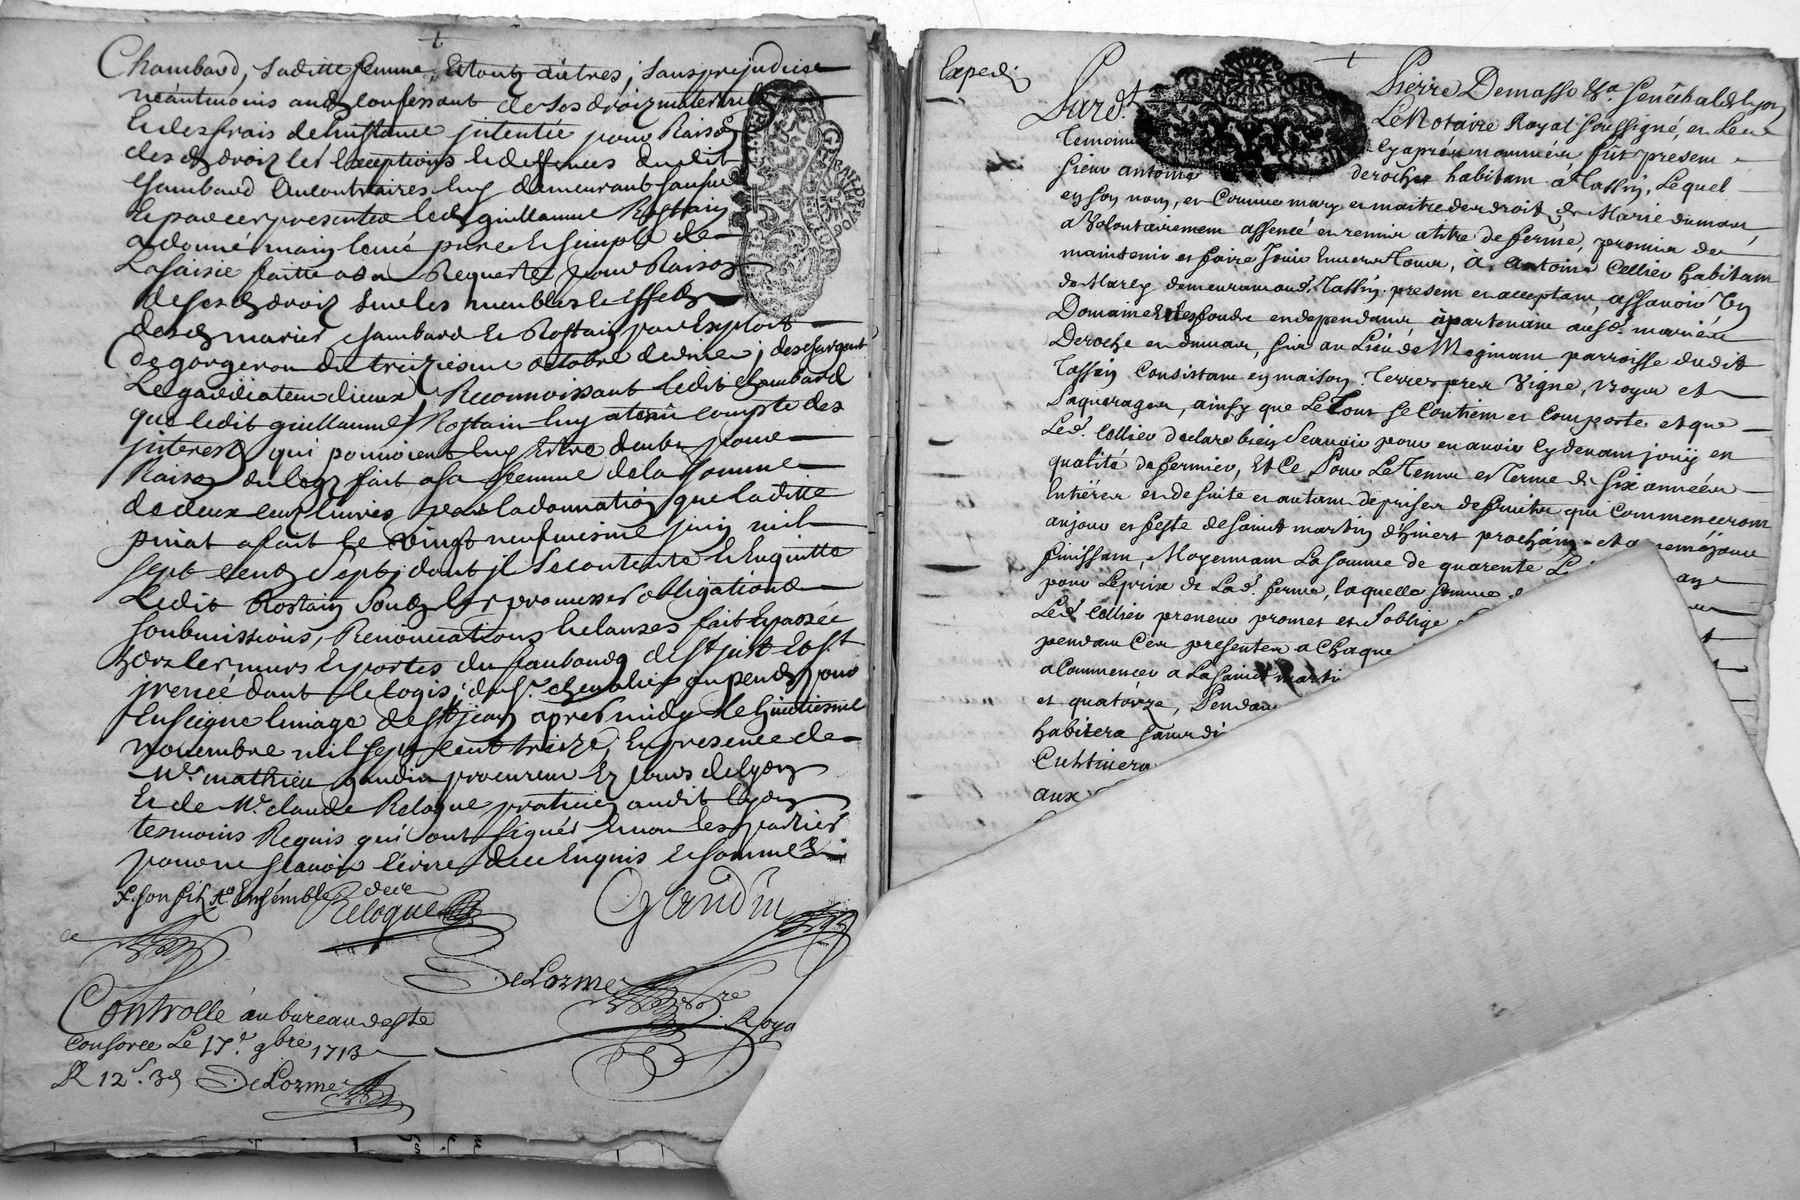 Chambard, saditte femme, Et tous autres, sans prejudice
neantmoins aud confessant de ses droiz maternels
Et des frais de l'instance intentée pour Raison
desd droiz les Exceptions et deffences dudit
Chambard Au contraires luy demeurant sauves
Et par ces presentes led guillaume Rostain
a donné main levée pure Et simple de
La saisie faitte a sa Requeste pour Raison
de sesd droiz sur les meubles et effects
desd mariés chambard Et Rostain par Exploit
de gorgeron du treiziesme octobre dernier, deschargeant
Le gardiateur d'iceux, Reconnoissant ledit chambard
que ledit guillaume Rostain luy a tenu compte des
interests qui pouvoient luy Estre deubs pour
Raison du legs fait a sa femme de la somme
de deux cent livres par la donnation que laditte
pinat a fait le vingt neufviesme juin mil
sept cent sept, dont il se contente et En quitte
Ledit Rostain soubz les promesses obligations
soubmissions, Renonciations et clauses fait Et passé
hors les murs Et portes du faubourg de St just Et St
irenée dans le logis, du Sr. chevalier au pend pour
Enseigne l'image de St jean apres midy Le huitiesme
novembre mil sept cent treize, En presence de
Me. mathieu gandin procureur Ez cours de lyon
Et de Me. claude Relogue praticien audit lyon
tesmoins Requis qui ont signés Et non les parties
pour ne sçavoir Escrire de ce Enquis Et sommés
son fils Ensemble de ce
Relogue Gandin
DeLorme Nre Roya
Controllé au bureau de Ste
Consorce Le 17e. 9bre 1713
R 12s. 3d DeLorme
Expedi
GENERALITE DE LYON
Pardt Pierre Demasso &a. Senêchal de lyon
Le Notaire Royal soussigné, et Les
Temoins Cy aprés nommés fût present
sieur antoine deroche habitant a Tassin, Lequel
en son nom, et Comme mary et maitre des droits de Marie dumas,
a Volontairement affermé et remis a titre de ferme, promis de
maintenir et faire Jouir Envers et Tous, A Antoine Cellier habitant
de Marcy demeurant aud. Tassin present et acceptant, assavoir Un
Domaine Et les fonds en dependants apartenant ausd. mariés
Deroche et dumas, sis au Lieu de Meginant parroisse dudit
Tassin Consistant en maison, Terres, prés Vigne, Noyer et
Paquerages, ainsy que Le Tout se Contient et Comporte et que
Led. Cellier declare bien Sçavoir pour en avoir Cy devant jouÿ en
qualité de fermier, Et Ce Pour Le Temps et Terme de six années
Entiéres et de suite et autant de prises de fruits que Commenceront
au jour et feste de saint martin d'hivert prochain et a
finissant, Moyennant La somme de quarente
pour Le prix de Lad. ferme, laquelle somme
Led. Cellier preneur promet et s'oblige
pendant Ces presentes a Chaque
a Commencer a La Saint marti
et quatorze, Pendan
habitera sans di
Cultivera
aux